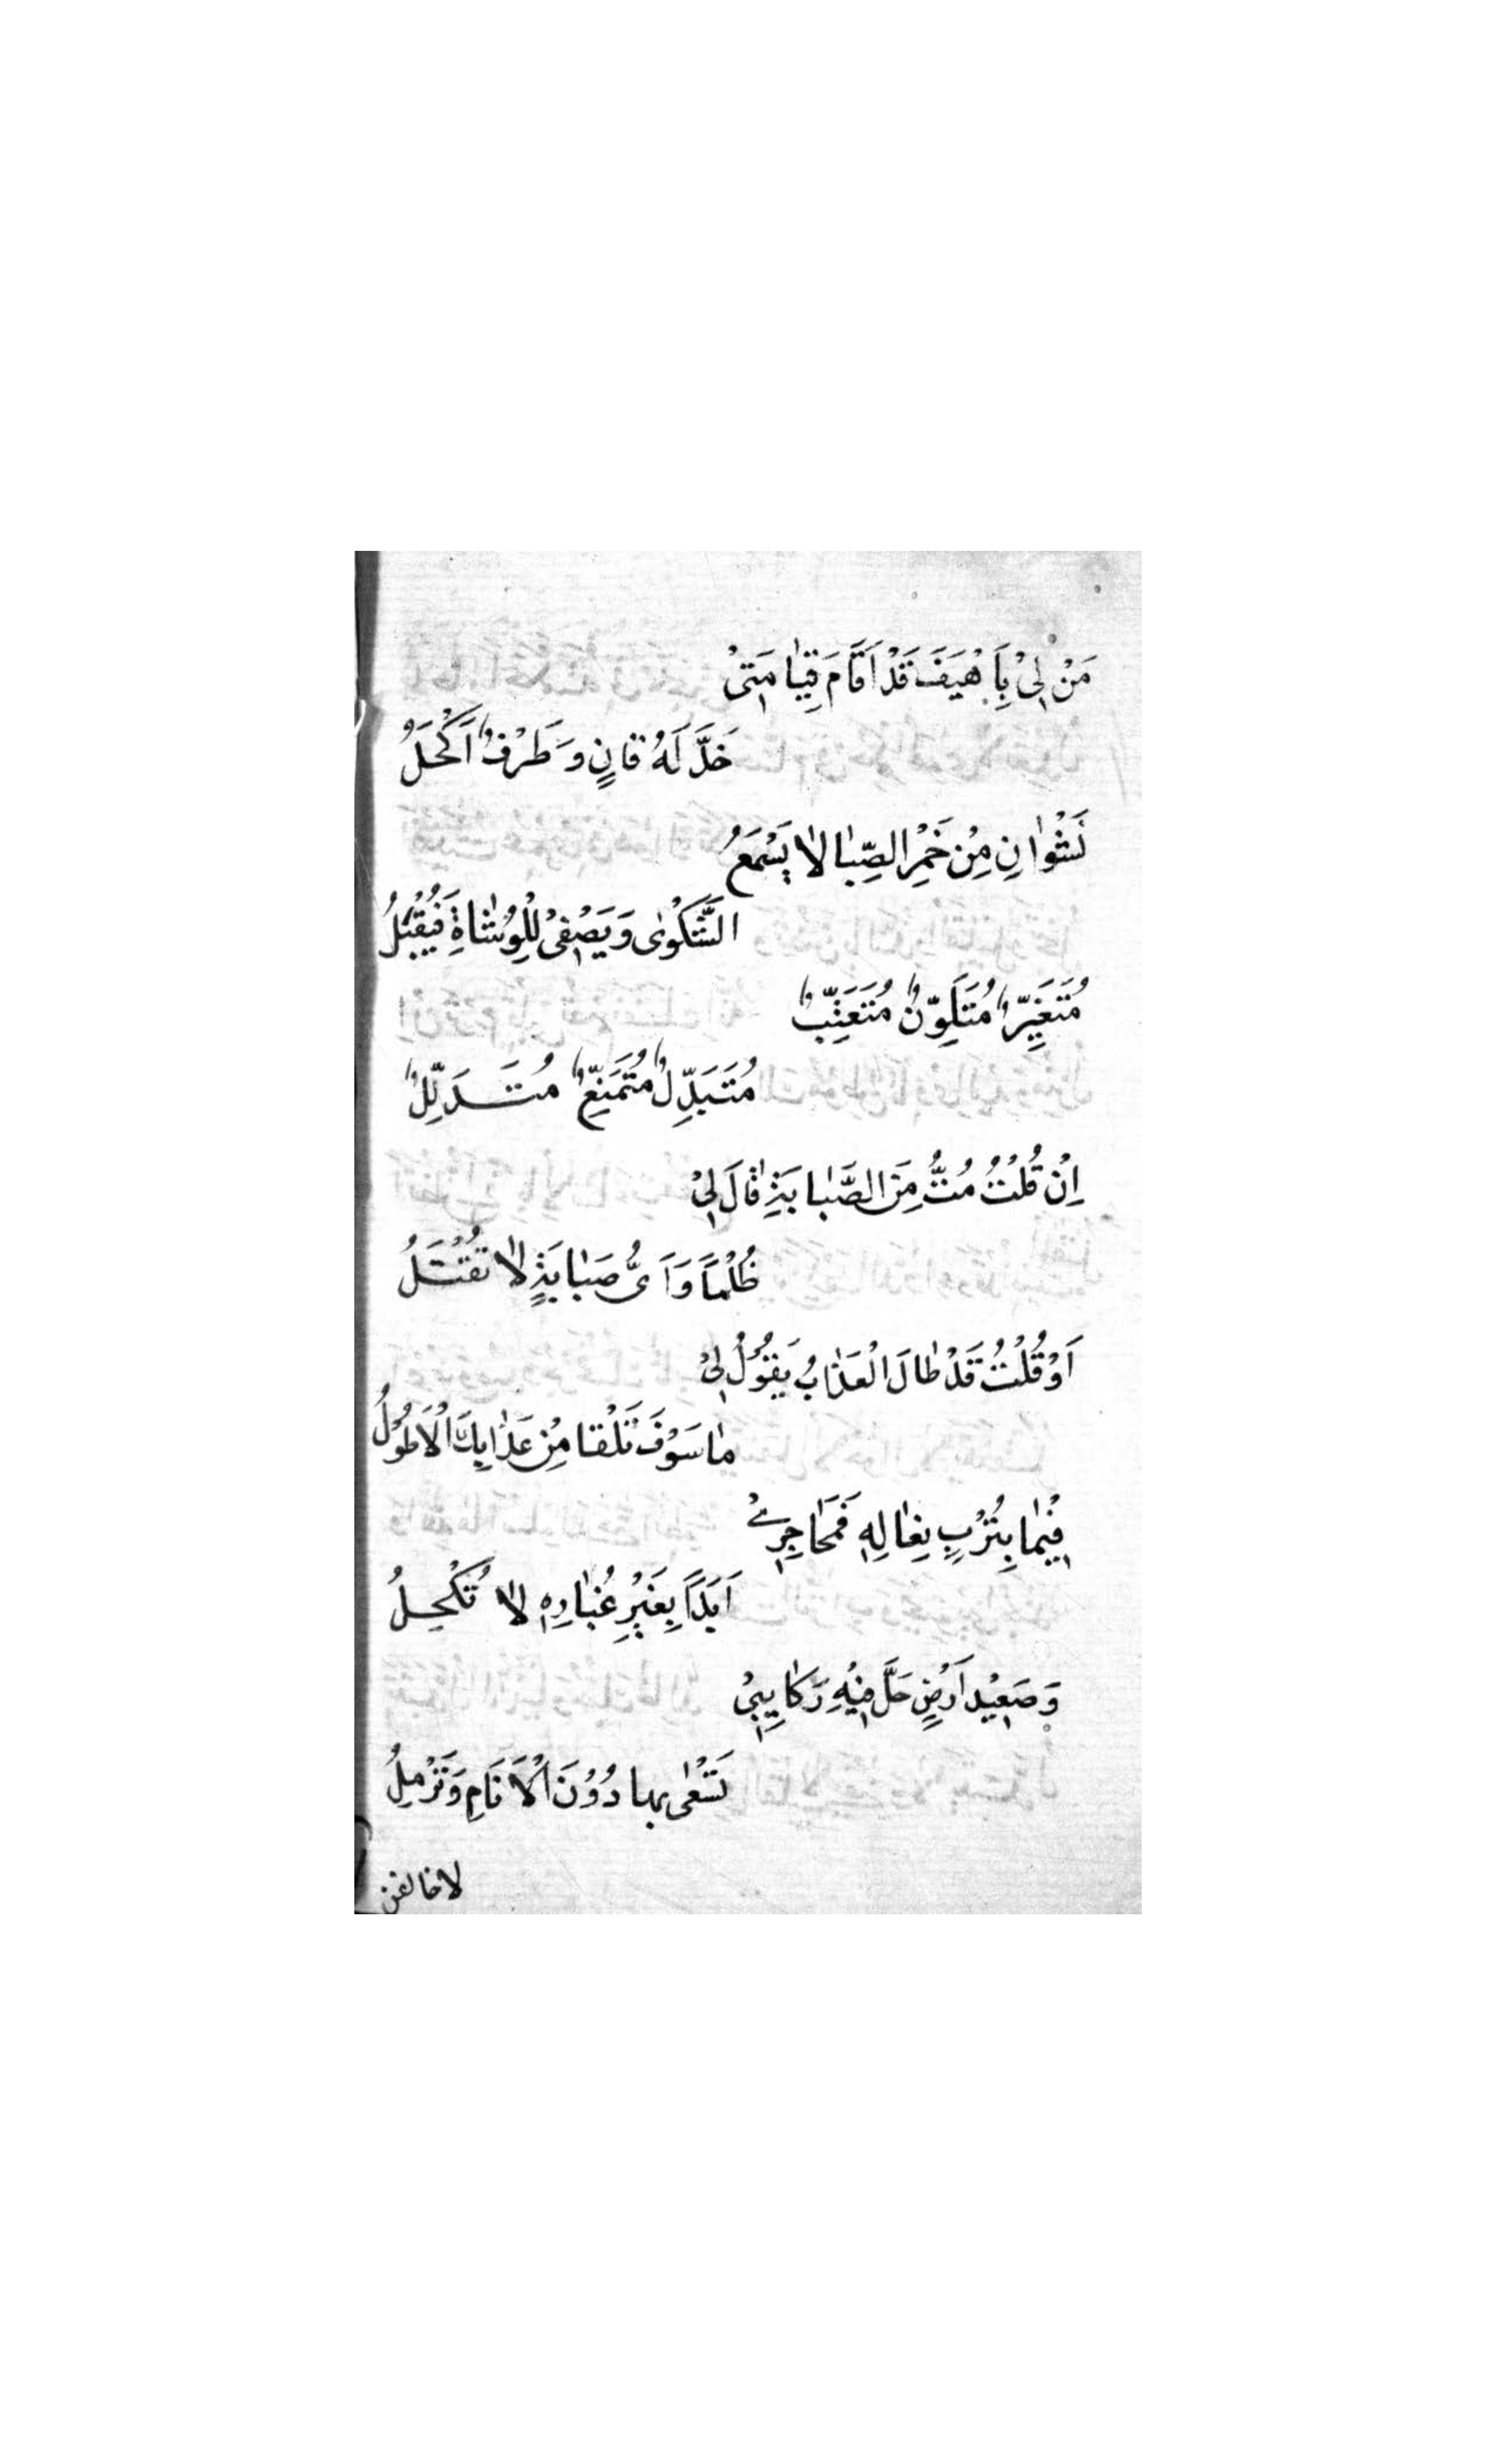 مَنْ لِيْ بِاَهْيَفَ قَدْ اَقَامَ قِيٰامَتِيْ
خَدٌّ لَهُ قانٍ وَطَرْفٌ اَكْحَلُ
نَشْوٰانِ مِنْ خَمْرِ الصِّبٰا لاٰ يَسْمَعُ
الشَّكْوٰى وَيَصْغِىْ لِلْوُشٰاةِ فَيُقْبَلُ
مُتَغَيِّرٌ مُتَلَوِّنٌ مُتَعَنِّبٌ
مُتَبَدِّلٌ مُتَمَنِّعٌ مُتَدَلِّلٌ
اِنْ قُلْتُ مُتُّ مِنَ الصَّبٰابَةِ قٰالَ لِيْ
ظُلْماً وَاَىُّ صَبٰابَةٍ لاٰ تَقْتُلُ
اَوْ قُلْتُ قَدْ طٰالَ الْعَذٰابُ يَقُوْلُ لِيْ
مٰا سَوْفَ تَلْقٰا مِنْ عَذٰابِكَ الْاَطْوَلُ
فِيْمٰا بِتُرْبِ نِعٰالِهِ فَمَحٰاجِرِيْ
اَبَداً بِغَيْرِ غُبٰارِهِ لاٰ تُكْحِلُ
وَصَعِيْدِ اَرْضٍ حَلَّ فِيْهِ رَكٰايِبِيْ
تَسْعٰى بها دُوْنَ الْاَنَامِ وَتَرْمِلُ